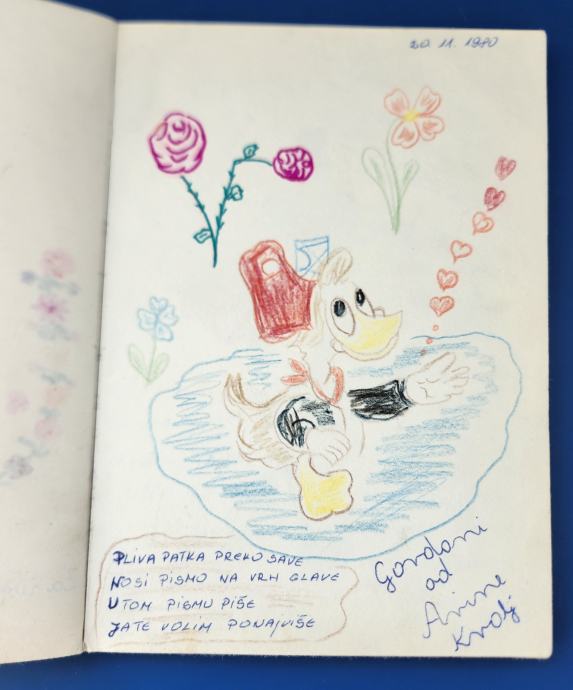 20. 11. 1980
PLIVA PATKA PREKO SAVE
NOSI PISMO NA VRH GLAVE
UTOM PISMU PIŠE
JATE VOLIM PONAJVIŠE
Gordani
od